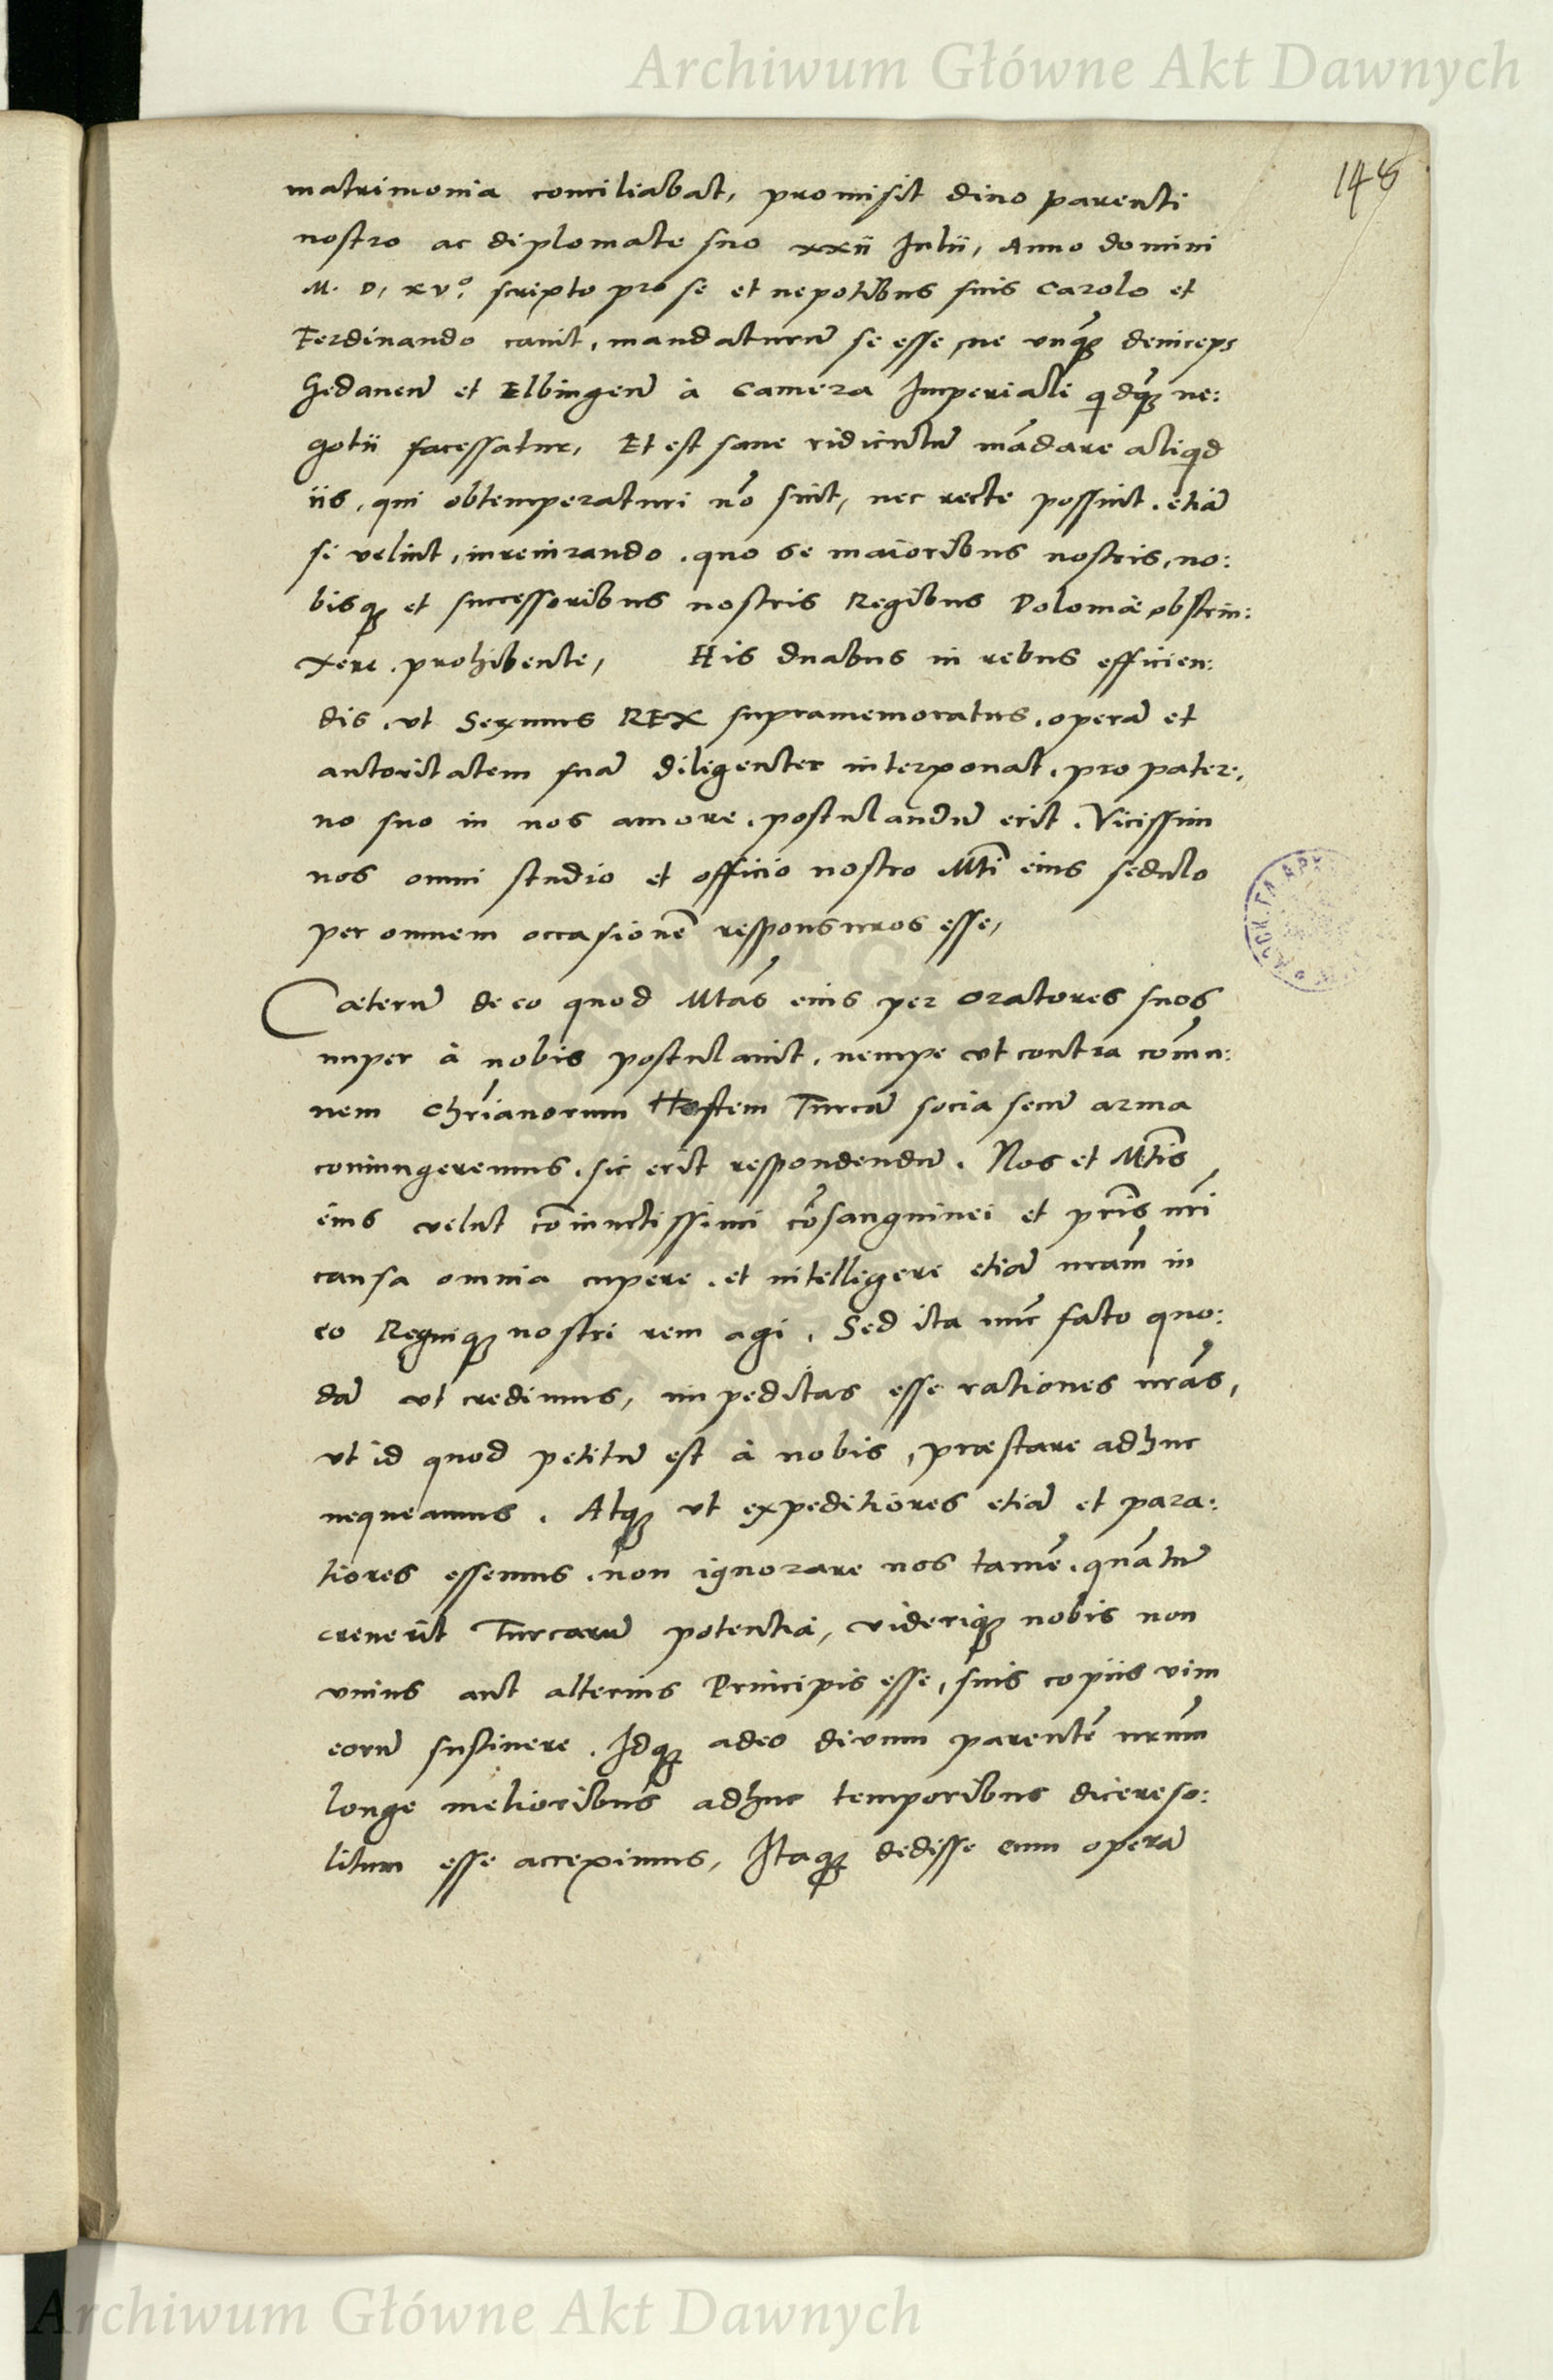 Archiwum Główne Akt Dawnych
148
matrimonia conciliabat, promisit diuo parenti
nostro ac diplomate suo xxii Julii, Anno domini
M. D, xv.º scripto pro se et nepotibus suis Carolo et
Ferdinando cauit, mandaturũ se esse, ne vnq̃ȝ deinceps
Gedaneñ et Elbingeñ à Camera Imperiali qidq̃ȝ ne:
gotii facessatur, Et est sane ridiculũ mãdare aliqid
iis, qui obtemperaturi nõ sint, nec recte possint. etiã
si velint, iureiurando. quo se maioribus nostris, no:
bisqȝ et successoribus nostris Regibus Poloniæ obstrin:
xere. prohibente, His duabus in rebus efficien:
dis. vt Serẽmus REX supramemoratus. operã et
autoritatem suã diligenter interponat. pro pater,
no suo in nos amore. postulandũ erit. Vicissim
nos omni studio et officio nostro Mti eius sedulo
per omnem occasionẽ responsuros esse,
Cæterũ de eo quod Mtas eius per oratores suos
nuper à nobis postulauit. nempe vt contra cõmu:
nem Chrianorum Hostem Turcã socia secũ arma
coniungeremus. sic erit respondendũ. Nos et Mtis
eius velut cõiunctissimi cõsanguinei et pris nri
causa omnia cupere. et intelligere etiã nram in
eo Regniqȝ nostri rem agi. Sed ita nũc fato quo:
dã vt credimus, impeditas esse rationes nras,
vt id quod petitũ est à nobis, præstare adhuc
nequeamus. Atqȝ vt expeditiores etiã et para:
tiores essemus. non ignorare nos tamẽ. quãtũ
creuerit Turcarũ potentia, videriqȝ nobis non
vnius aut alterius Principis esse, suis copiis vim
eorũ sustinere. Idqȝ adeo diuum parentẽ nrum
longe melioribus adhuc temporibus dicere so:
litum esse accepimus, Itaqȝ dedisse eum operã
Archiwum Główne Akt Dawnych